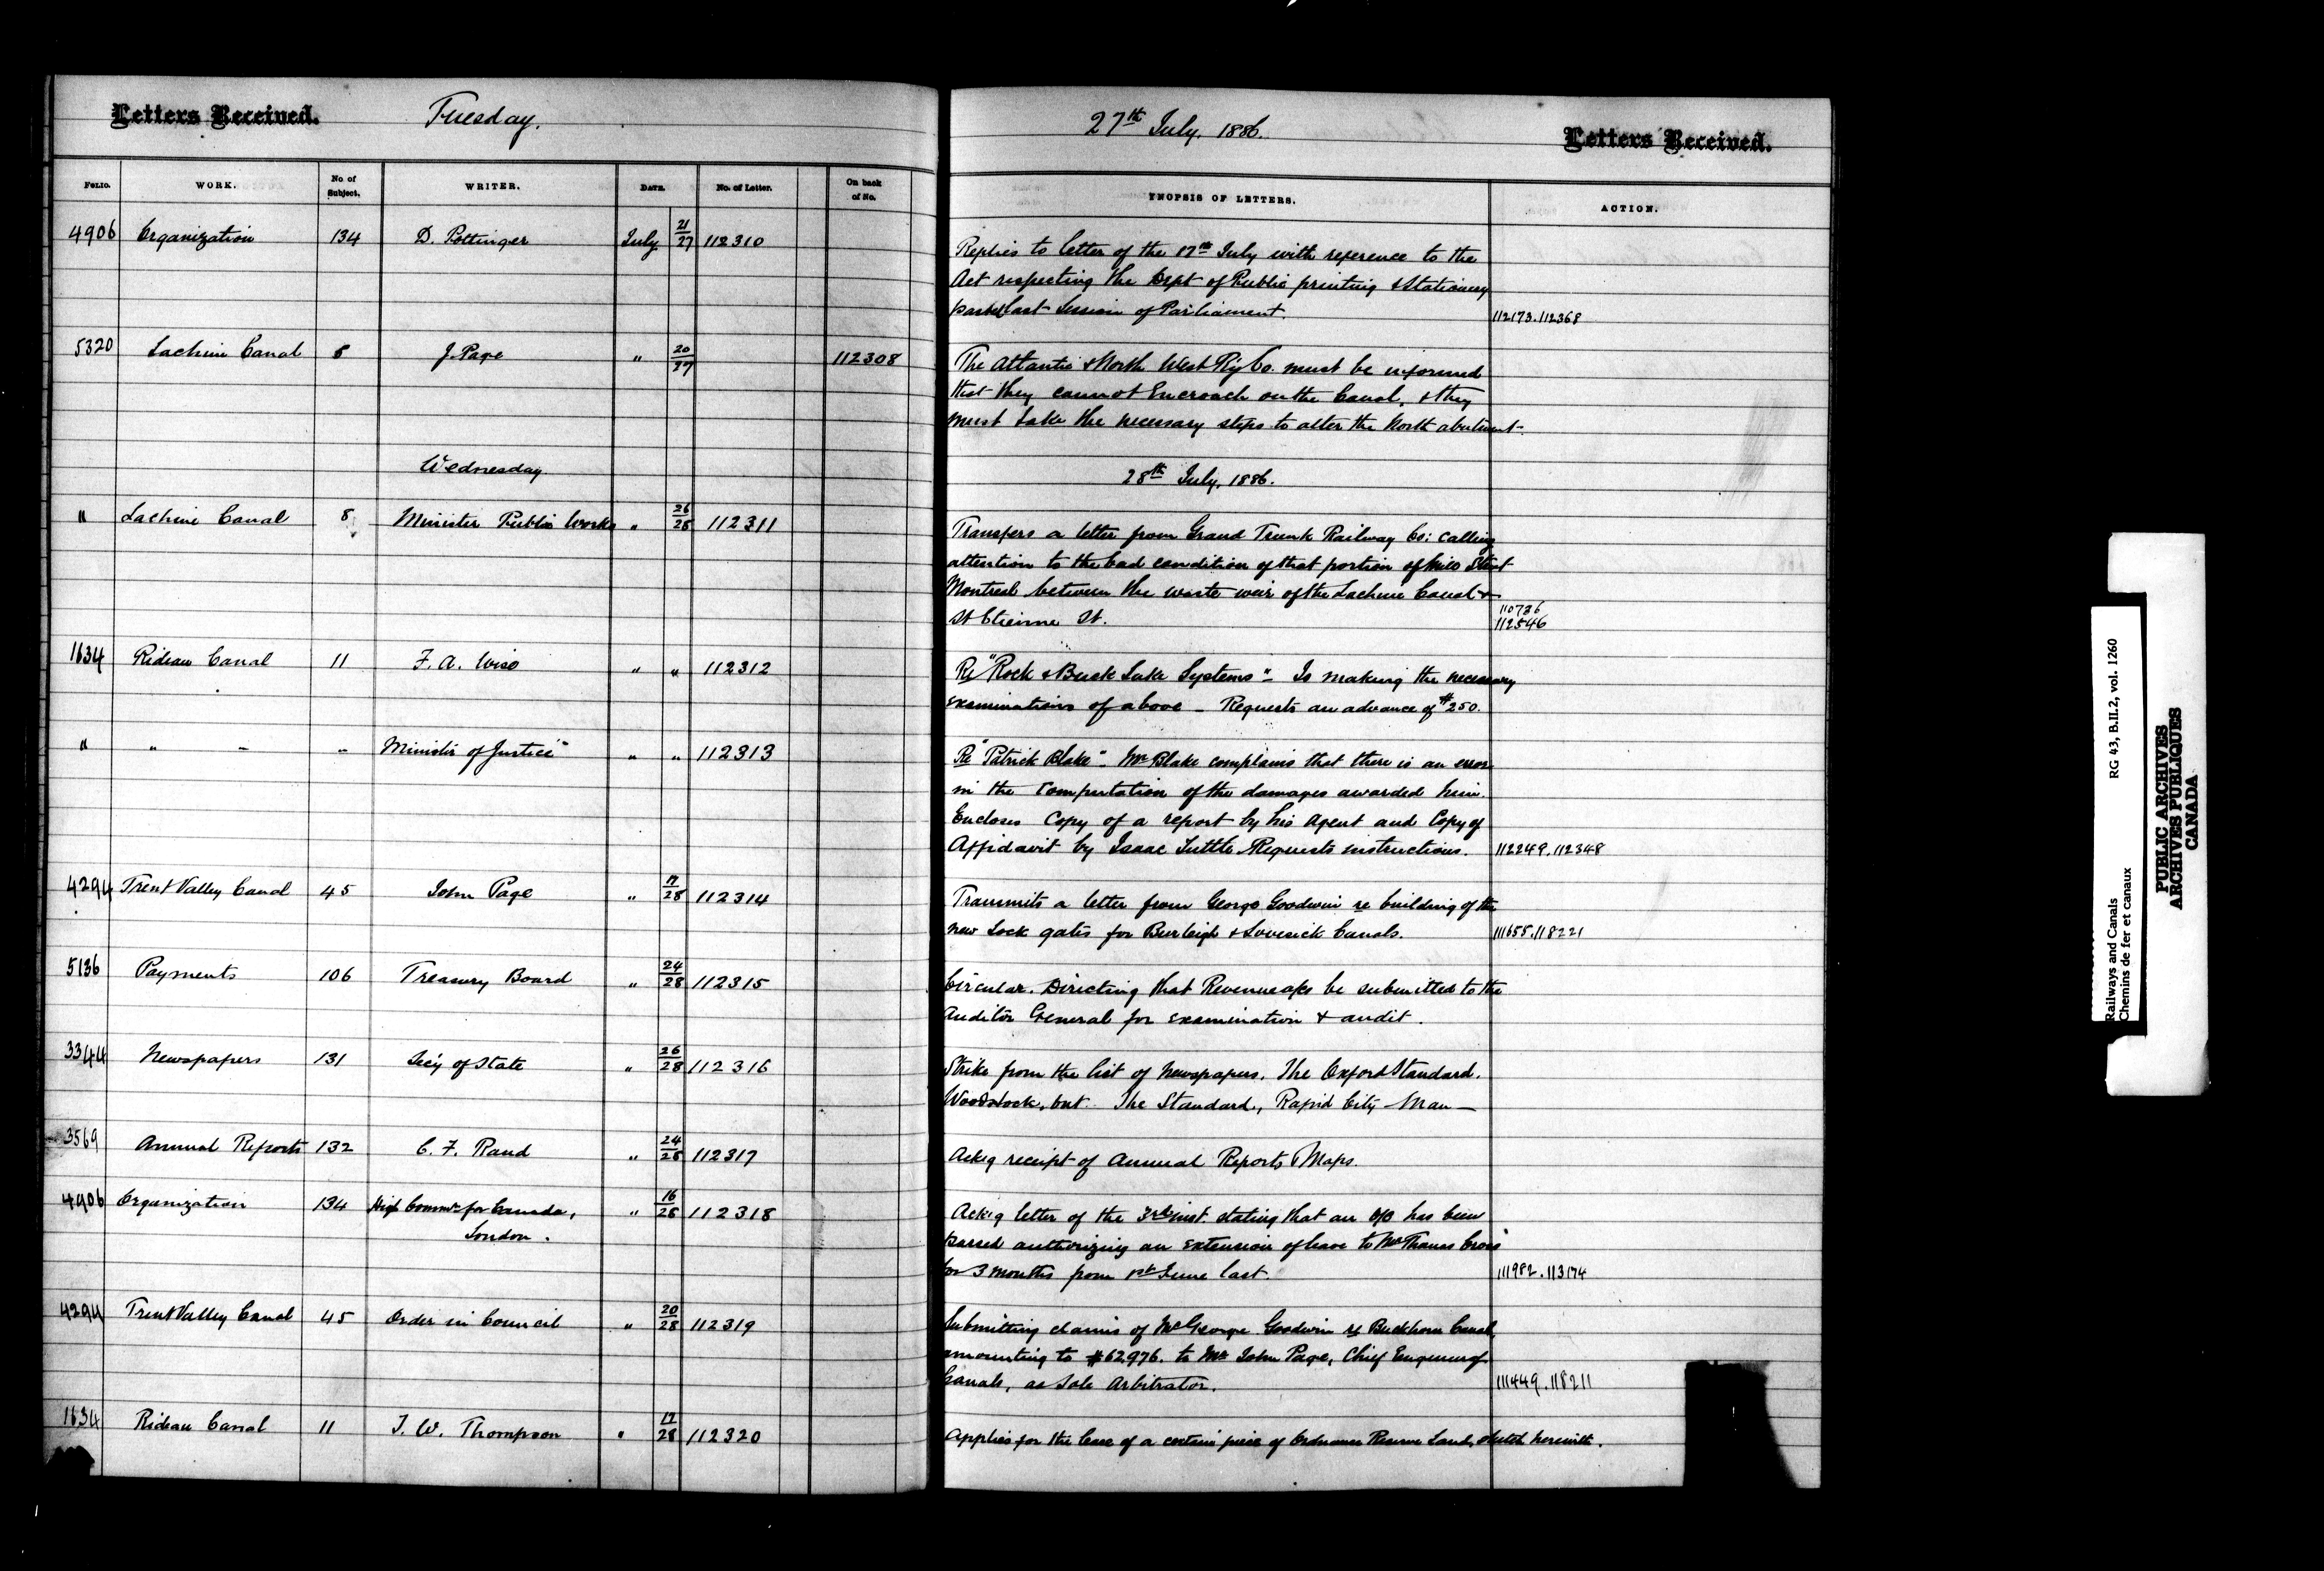 Letters Received. Tuesday. 27th July, 1886. Letters Received.
FOLIO. WORK. No. of Subject. WRITER. DATE. No. of Letter. On back of No. SYNOPSIS OF LETTERS. ACTION.
4906 Organization 134 D. Pottinger July 21/27 112310
Replies to letter of the 17th July with reference to the
Act respecting the Dept of Public printing & Stationery
passed last Session of Parliament. 112173.112368
5320 Lachine Canal 8 J. Page " 20/27 112308
The Atlantic & North West Ry Co. must be informed
that they cannot Encroach on the Canal, & they
must take the necessary steps to alter the North abutment.
Wednesday 28th July, 1886.
" Lachine Canal 8 Minister Public Works " 26/28 112311
Transfers a letter from Grand Trunk Railway Co: calling
attention to the bad condition of that portion of Mill Street
Montreal between the waste weir of the Lachine Canal &
St Etienne St. 110736
112546
1634 Rideau Canal 11 F. A. Wise " " 112312
Re "Rock & Buck Lake Systems" - Is making the necessary
examinations of above - Requests an advance of $250.
" " " " Minister of Justice " " 112313
Re "Patrick Blake" - Mr Blake complains that there is an error
in the computation of the damages awarded him.
Encloses Copy of a report by his Agent and Copy of
Affidavit by Isaac Tuttle. Requests instructions. 112249.112348
4294 Trent Valley Canal 45 John Page " 17/28 112314
Transmits a letter from George Goodwin re building of the
new Lock gates for Burleigh & Lovesick Canals. 111655.118221
5136 Payments 106 Treasury Board " 24/28 112315
Circular. Directing that Revenue a/cs be submitted to the
Auditor General for examination & audit.
3344 Newspapers 131 Sec'y of State " 26/28 112316
Strike from the list of Newspapers. The Oxford Standard.
Woodstock, but. The Standard, Rapid City Man -
3569 Annual Reports 132 C. F. Rand " 24/28 112317
Ack'g receipt of Annual Reports & Maps.
4906 Organization 134 High Commr for Canada, " 16/28 112318
London.
Ack'g letter of the 3rd inst. stating that an O/C has been
passed authorizing an extension of leave to Mr Thomas Cross
for 3 months from 1st June last. 111982.113174
4294 Trent Valley Canal 45 Order in Council " 20/28 112319
Submitting claims of Mr George Goodwin re Buckhorn Canal,
amounting to $62,976. to Mr John Page, Chief Engineer of
Canals, as Sole Arbitrator. 111449.118211
1634 Rideau Canal 11 T. W. Thompson " 17/28 112320
Applies for the lease of a certain piece of Ordnance Reserve Land, sketch herewith.
Railways and Canals RG 43, B.II.2, vol. 1260
Chemins de fer et canaux
PUBLIC ARCHIVES
ARCHIVES PUBLIQUES
CANADA